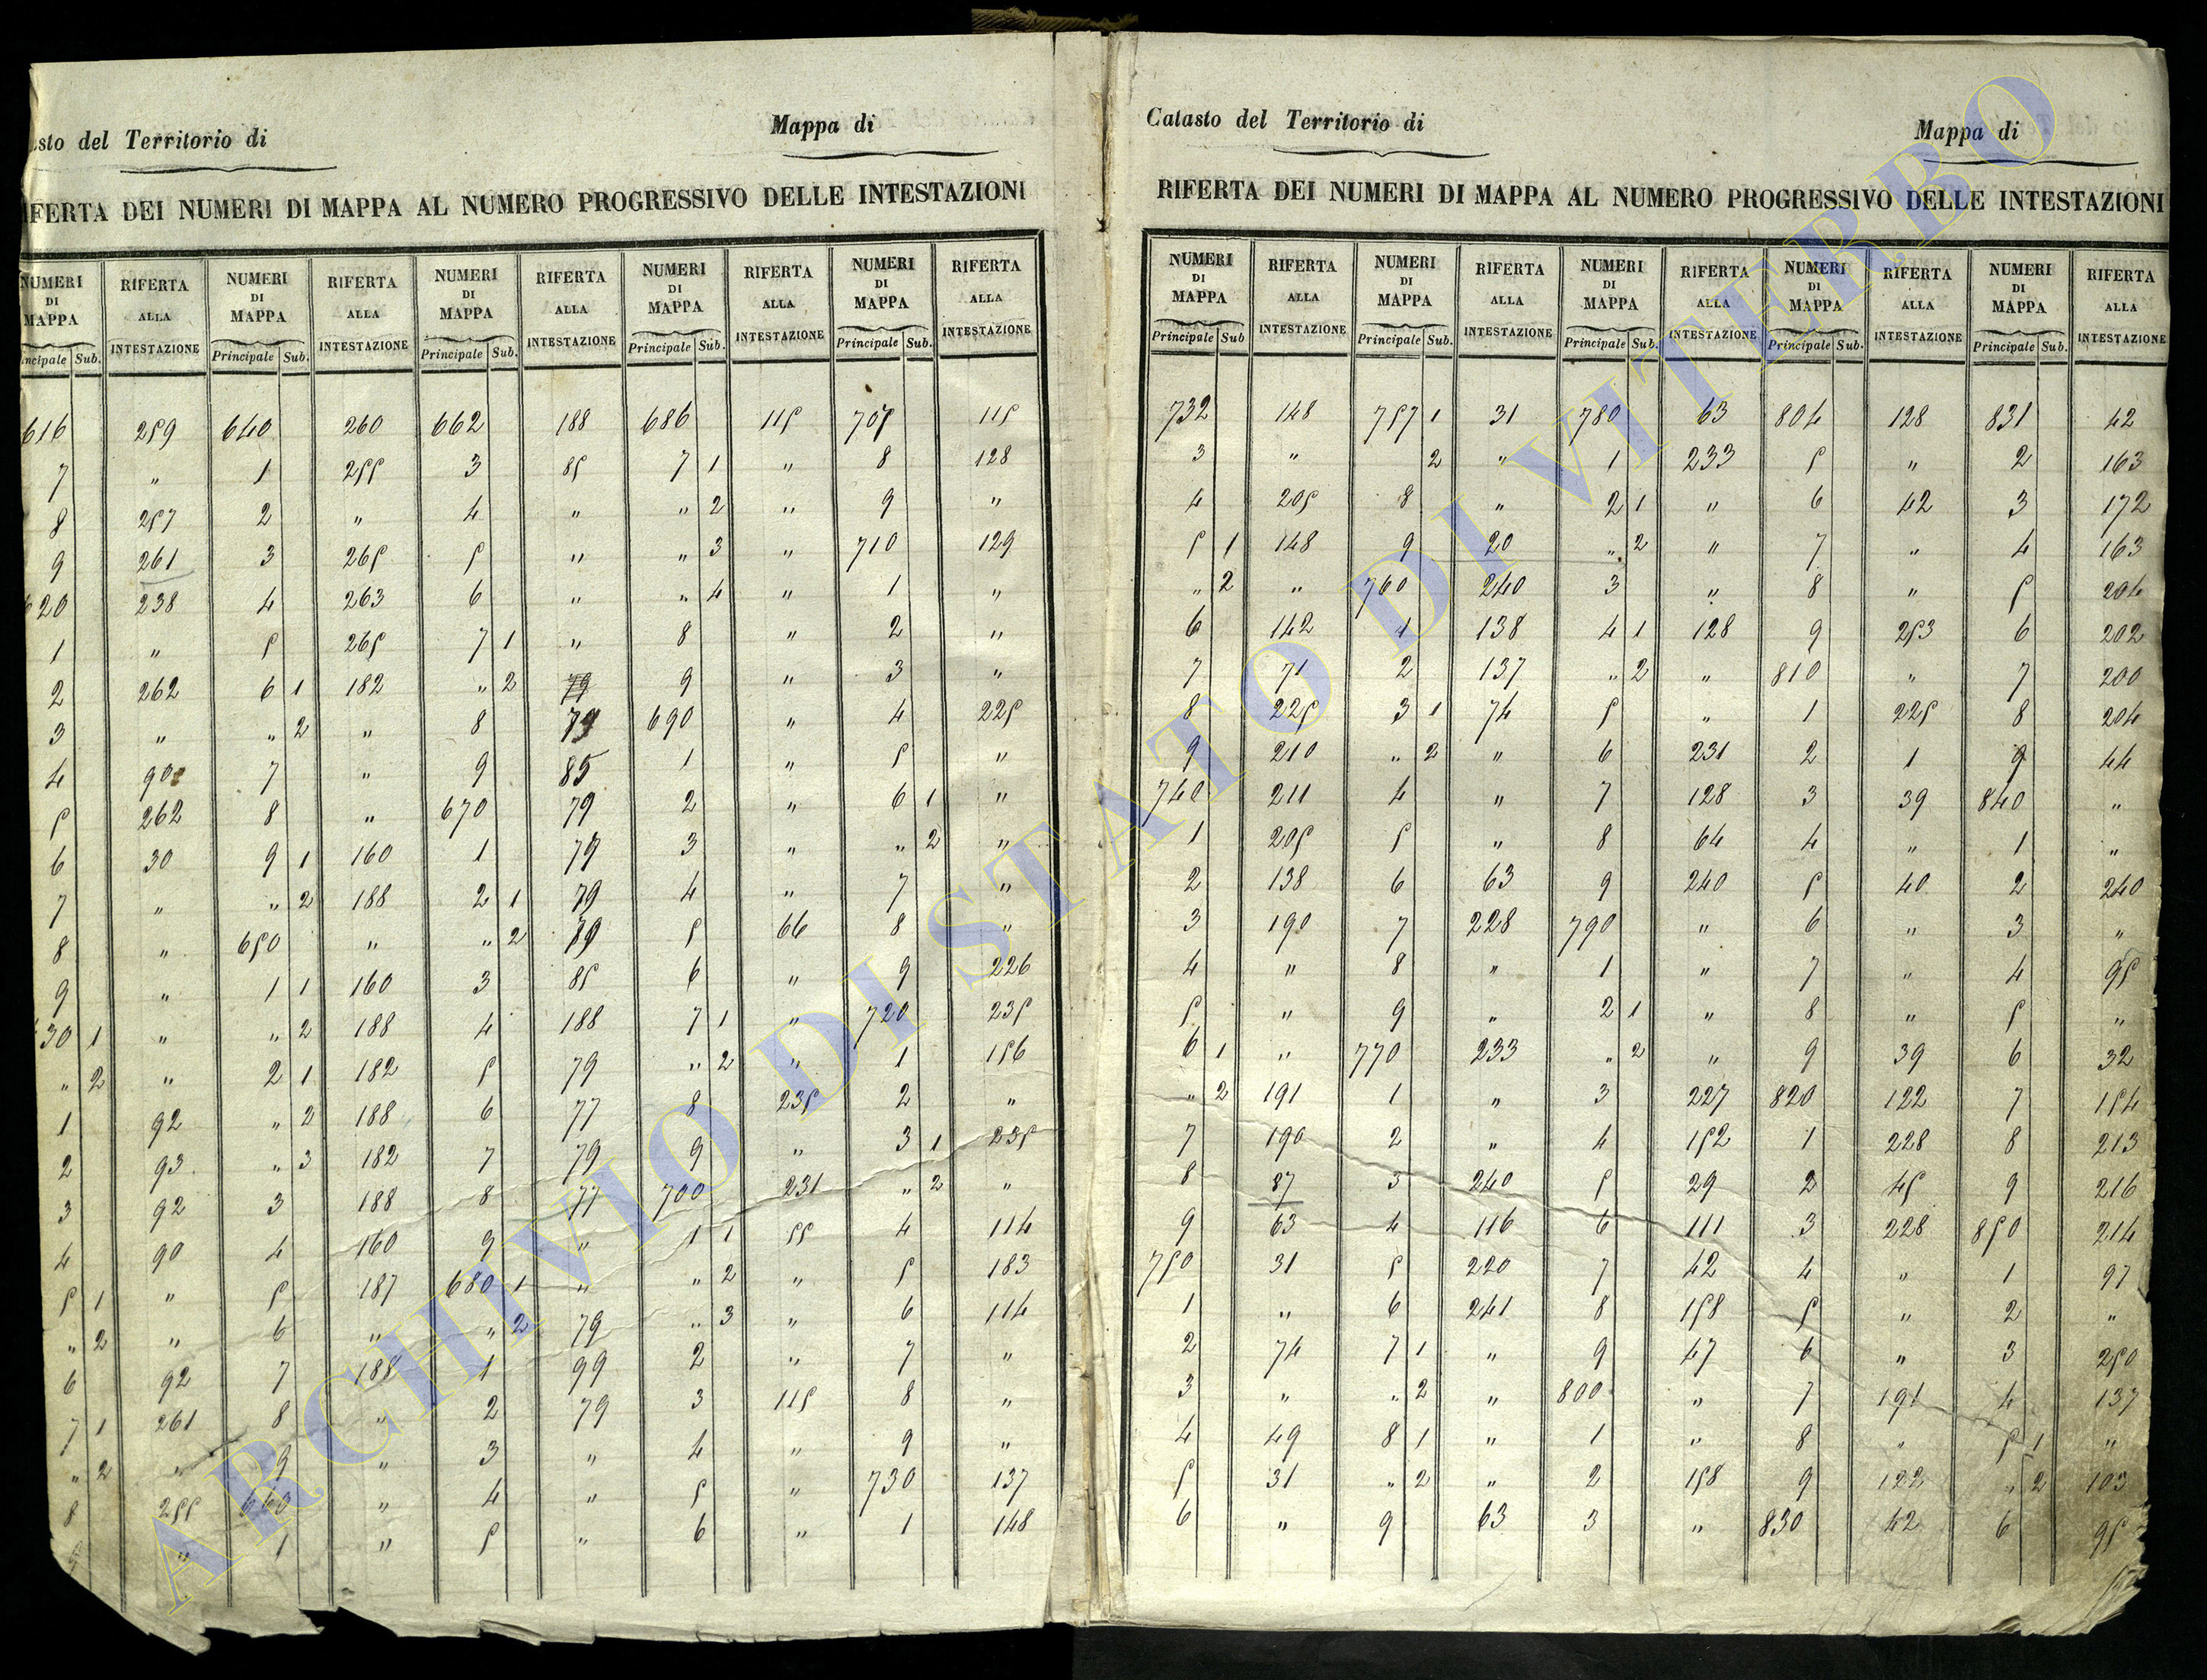 asto del Territorio di Mappa di
IFERTA DEI NUMERI DI MAPPA AL NUMERO PROGRESSIVO DELLE INTESTAZIONI
NUMERI DI MAPPA RIFERTA ALLA INTESTAZIONE NUMERI DI MAPPA RIFERTA ALLA INTESTAZIONE NUMERI DI MAPPA RIFERTA ALLA INTESTAZIONE NUMERI DI MAPPA RIFERTA ALLA INTESTAZIONE NUMERI DI MAPPA RIFERTA ALLA INTESTAZIONE
ncipale Sub. Principale Sub. Principale Sub. Principale Sub. Principale Sub.
616 259 640 260 662 188 686 115 707 115
7 „ 1 255 3 85 7 1 „ 8 128
8 257 2 „ 4 „ „ 2 „ 9 „
9 261 3 265 5 „ „ 3 „ 710 129
620 238 4 263 6 „ „ 4 „ 1 „
1 „ 5 265 7 1 „ 8 „ 2 „
2 262 6 1 182 „ 2 79 9 „ 3 „
3 „ „ 2 „ 8 79 690 „ 4 225
4 90 7 „ 9 85 1 „ 5 „
5 262 8 „ 670 79 2 „ 6 1 „
6 30 9 1 160 1 79 3 „ „ 2 „
7 „ „ 2 188 2 1 79 4 „ 7 „
8 „ 650 „ „ 2 79 5 66 8 „
9 „ 1 1 160 3 85 6 „ 9 226
630 1 „ „ 2 188 4 188 7 1 „ 720 235
„ 2 „ 2 1 182 5 79 „ 2 „ 1 156
1 92 „ 2 188 6 77 8 235 2 „
2 93 „ 3 182 7 79 9 „ 3 1 235
3 92 3 188 8 77 700 231 „ 2 „
4 90 4 160 9 „ 1 1 55 4 114
5 1 „ 5 187 680 1 „ „ 2 „ 5 183
„ 2 „ 6 „ „ 2 79 „ 3 „ 6 114
6 92 7 188 1 99 2 „ 7 „
7 1 261 8 „ 2 79 3 115 8 „
„ 2 „ 9 „ 3 „ 4 „ 9 „
8 255 660 „ 4 „ 5 „ 730 137
9 „ 1 „ 5 „ 6 „ 1 148
Catasto del Territorio di Mappa di
RIFERTA DEI NUMERI DI MAPPA AL NUMERO PROGRESSIVO DELLE INTESTAZIONI
NUMERI DI MAPPA RIFERTA ALLA INTESTAZIONE NUMERI DI MAPPA RIFERTA ALLA INTESTAZIONE NUMERI DI MAPPA RIFERTA ALLA INTESTAZIONE NUMERI DI MAPPA RIFERTA ALLA INTESTAZIONE NUMERI DI MAPPA RIFERTA ALLA INTESTAZIONE
Principale Sub Principale Sub. Principale Sub. Principale Sub. Principale Sub.
732 148 757 1 31 780 63 804 128 831 42
3 „ 2 „ 1 233 5 „ 2 163
4 205 8 „ 2 1 „ 6 42 3 172
5 1 148 9 20 „ 2 „ 7 „ 4 163
„ 2 „ 760 240 3 „ 8 „ 5 204
6 142 1 138 4 1 128 9 253 6 202
7 71 2 137 „ 2 „ 810 „ 7 200
8 225 3 1 74 5 „ 1 225 8 204
9 210 „ 2 „ 6 231 2 1 9 44
740 211 4 „ 7 128 3 39 840 „
1 205 5 „ 8 64 4 „ 1 „
2 138 6 63 9 240 5 40 2 240
3 190 7 228 790 „ 6 „ 3 „
4 „ 8 „ 1 „ 7 „ 4 95
5 „ 9 „ 2 1 „ 8 „ 5 „
6 1 „ 770 233 „ 2 „ 9 39 6 32
„ 2 191 1 „ 3 227 820 122 7 154
7 190 2 „ 4 152 1 228 8 213
8 87 3 240 5 29 2 45 9 216
9 63 4 116 6 111 3 228 850 214
750 31 5 220 7 42 4 „ 1 97
1 „ 6 241 8 158 5 „ 2 „
2 74 7 1 „ 9 47 6 „ 3 250
3 „ „ 2 „ 800 „ 7 191 4 137
4 49 8 1 „ 1 „ 8 „ 5 1 „
5 31 „ 2 „ 2 158 9 122 „ 2 103
6 „ 9 63 3 „ 830 42 6 95
ARCHIVIO DI STATO DI VITERBO